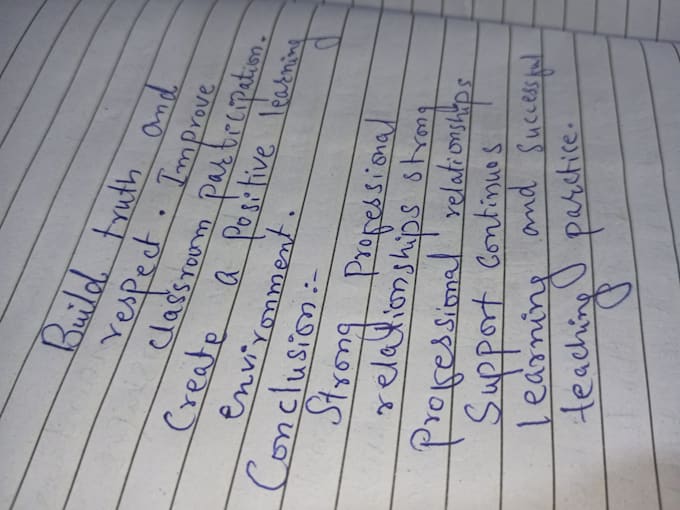 Build truth and
respect. Improve
classroom participation.
Create a Positive learning
environment.
Conclusion:-
Strong Professional
relationships strong
Professional relationships
Support continuos
learning and successful
teaching parctice.